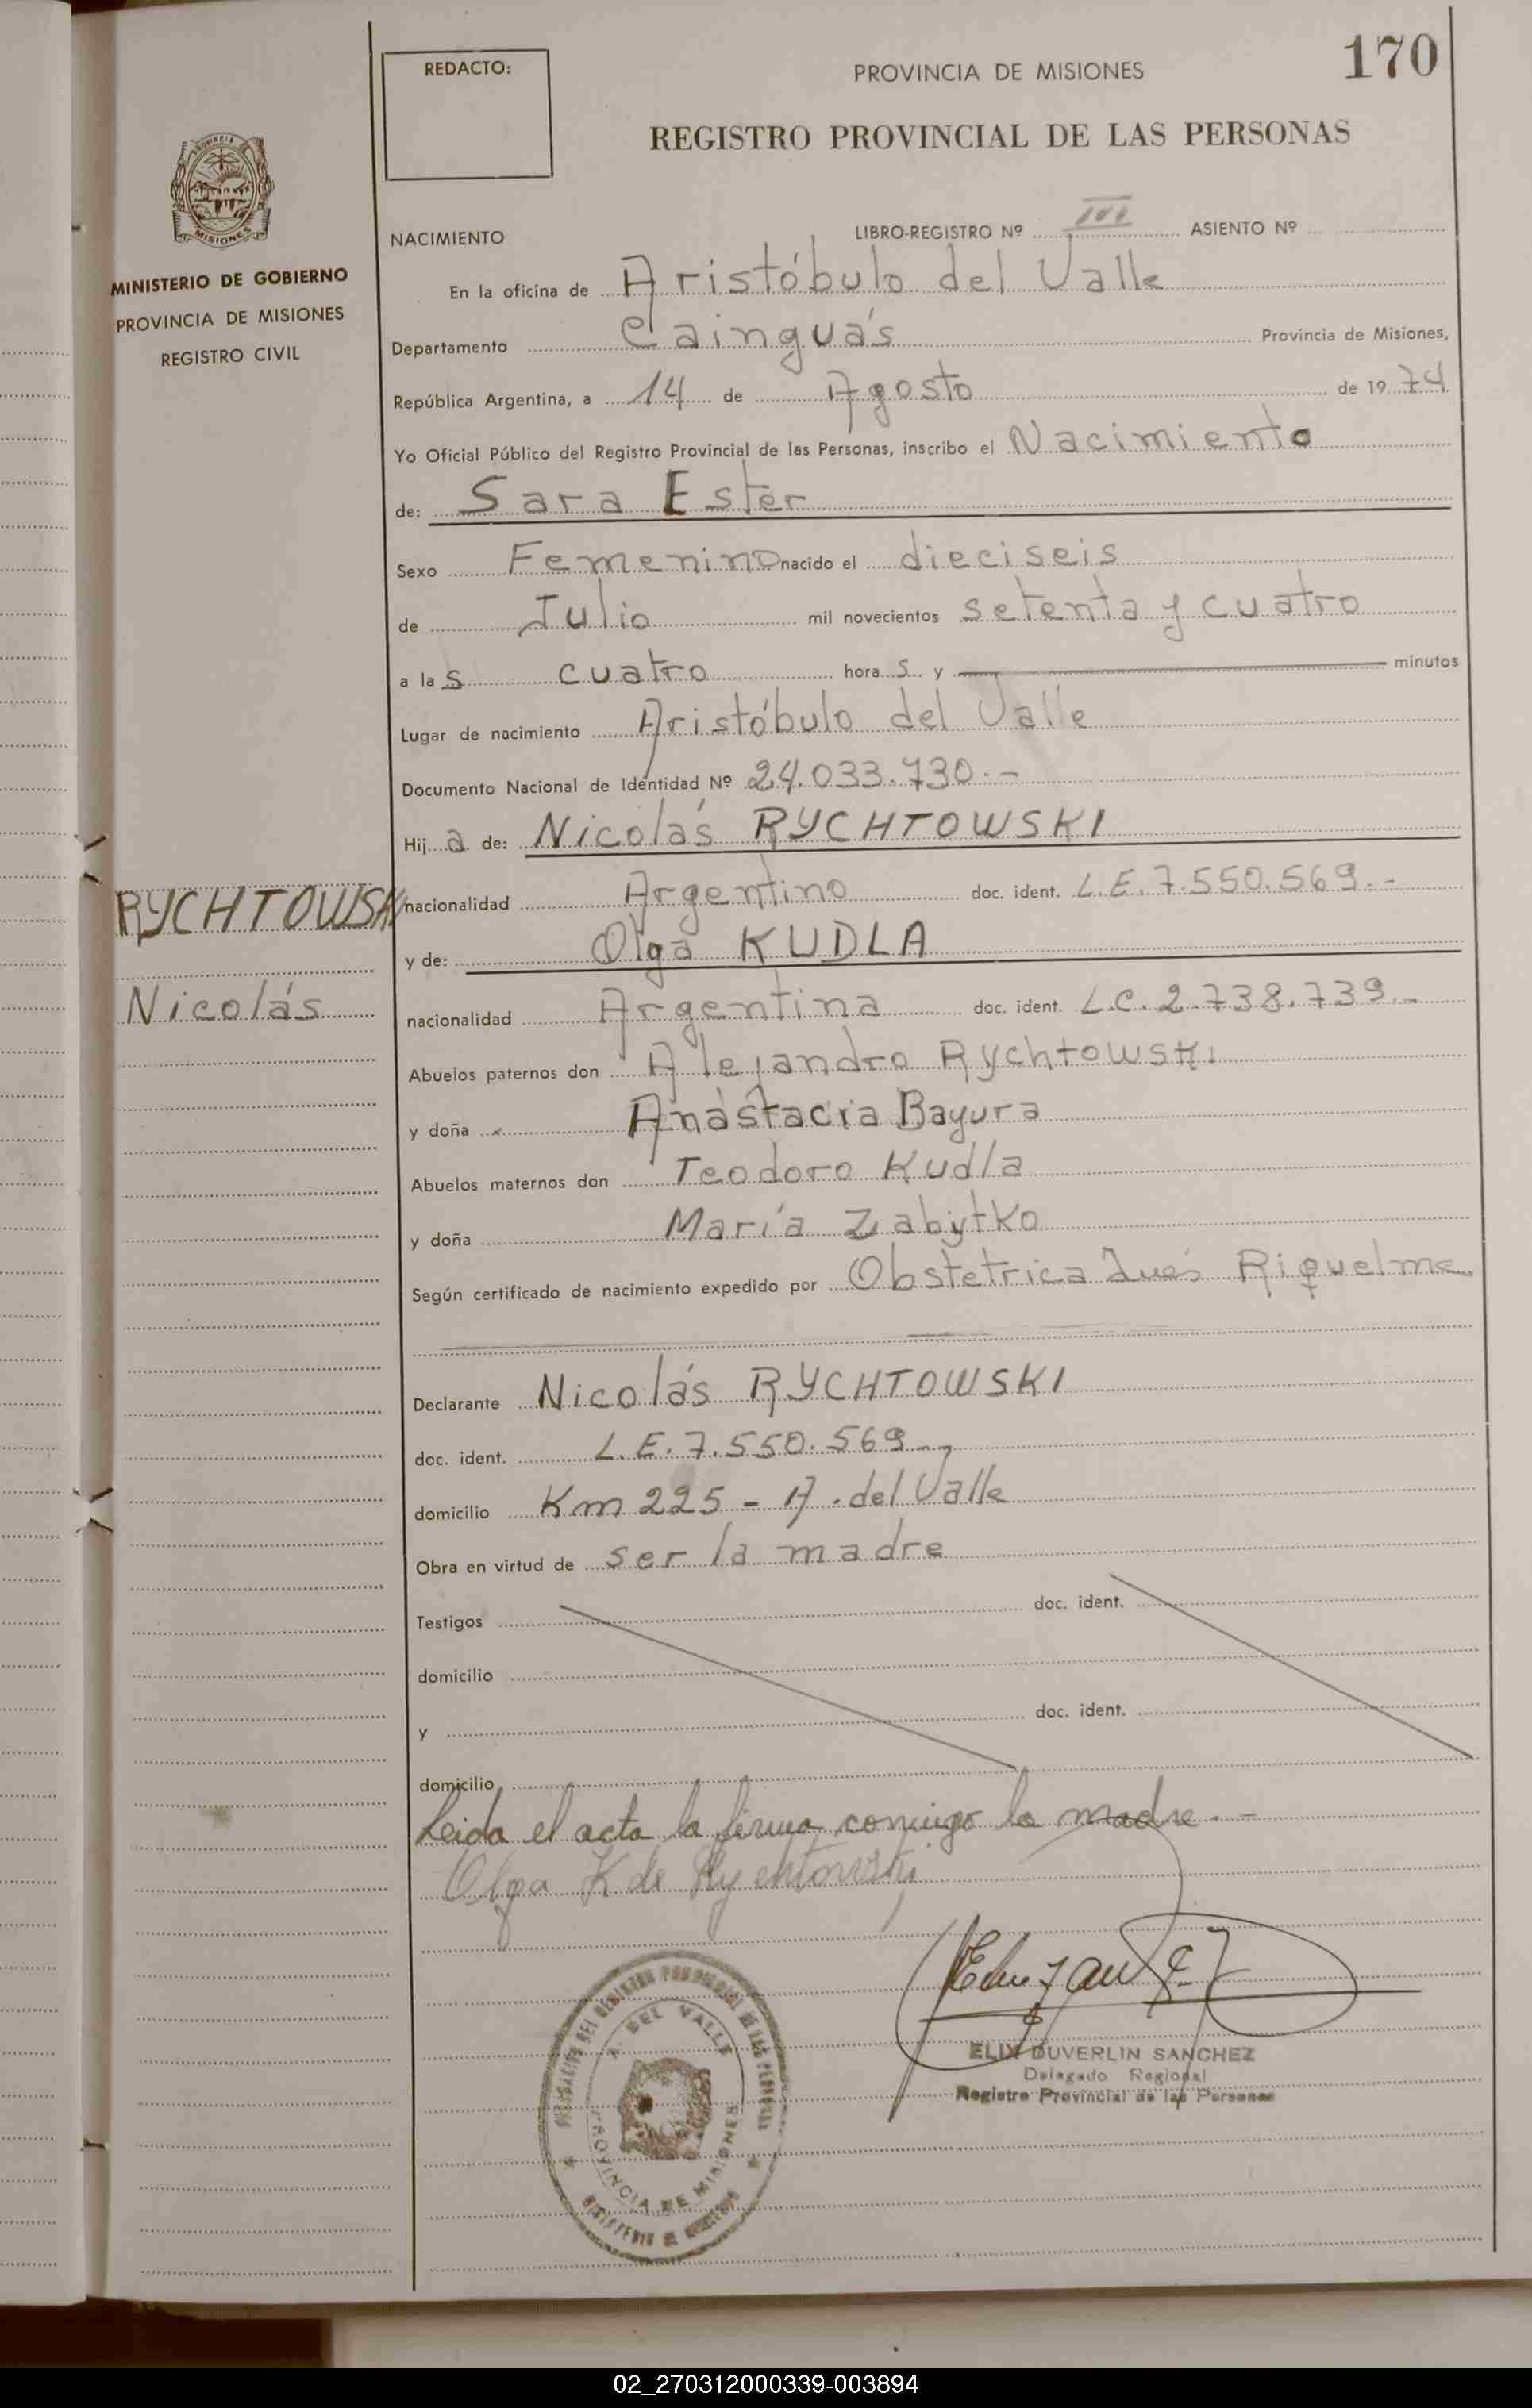 170
REDACTO:
PROVINCIA DE MISIONES
REGISTRO PROVINCIAL DE LAS PERSONAS
MISIONES
MINISTERIO DE GOBIERNO
PROVINCIA DE MISIONES
REGISTRO CIVIL
NACIMIENTO LIBRO-REGISTRO Nº III ASIENTO Nº
En la oficina de Aristóbulo del Valle
Departamento Cainguás Provincia de Misiones,
República Argentina, a 14 de Agosto de 1974
Yo Oficial Público del Registro Provincial de las Personas, inscribo el Nacimiento
de: Sara Ester
Sexo Femenino nacido el dieciseis
de Julio mil novecientos setenta y cuatro
a las cuatro horas y minutos
Lugar de nacimiento Aristóbulo del Valle
Documento Nacional de Identidad Nº 24.033.730.-
Hija de: Nicolás RYCHTOWSKI
RYCHTOWSKI
nacionalidad Argentino doc. ident. L.E.7.550.569.-
y de: Olga KUDLA
Nicolás
nacionalidad Argentina doc. ident. L.C.2.738.739.-
Abuelos paternos don Alejandro Rychtowski
y doña Anastacia Bayura
Abuelos maternos don Teodoro Kudla
y doña María Zabytko
Según certificado de nacimiento expedido por Obstetrica Inés Riquelme
Declarante Nicolás RYCHTOWSKI
doc. ident. L.E.7.550.569.-
domicilio Km 225 - A. del Valle
Obra en virtud de ser la madre
Testigos doc. ident.
domicilio
y doc. ident.
domicilio
Leida el acta la firma conmigo la madre.-
Olga K de Rychtowski
A. DEL VALLE
PROVINCIA DE MISIONES
ELIX DUVERLIN SANCHEZ
Delegado Regional
Registro Provincial de las Personas
02_270312000339-003894